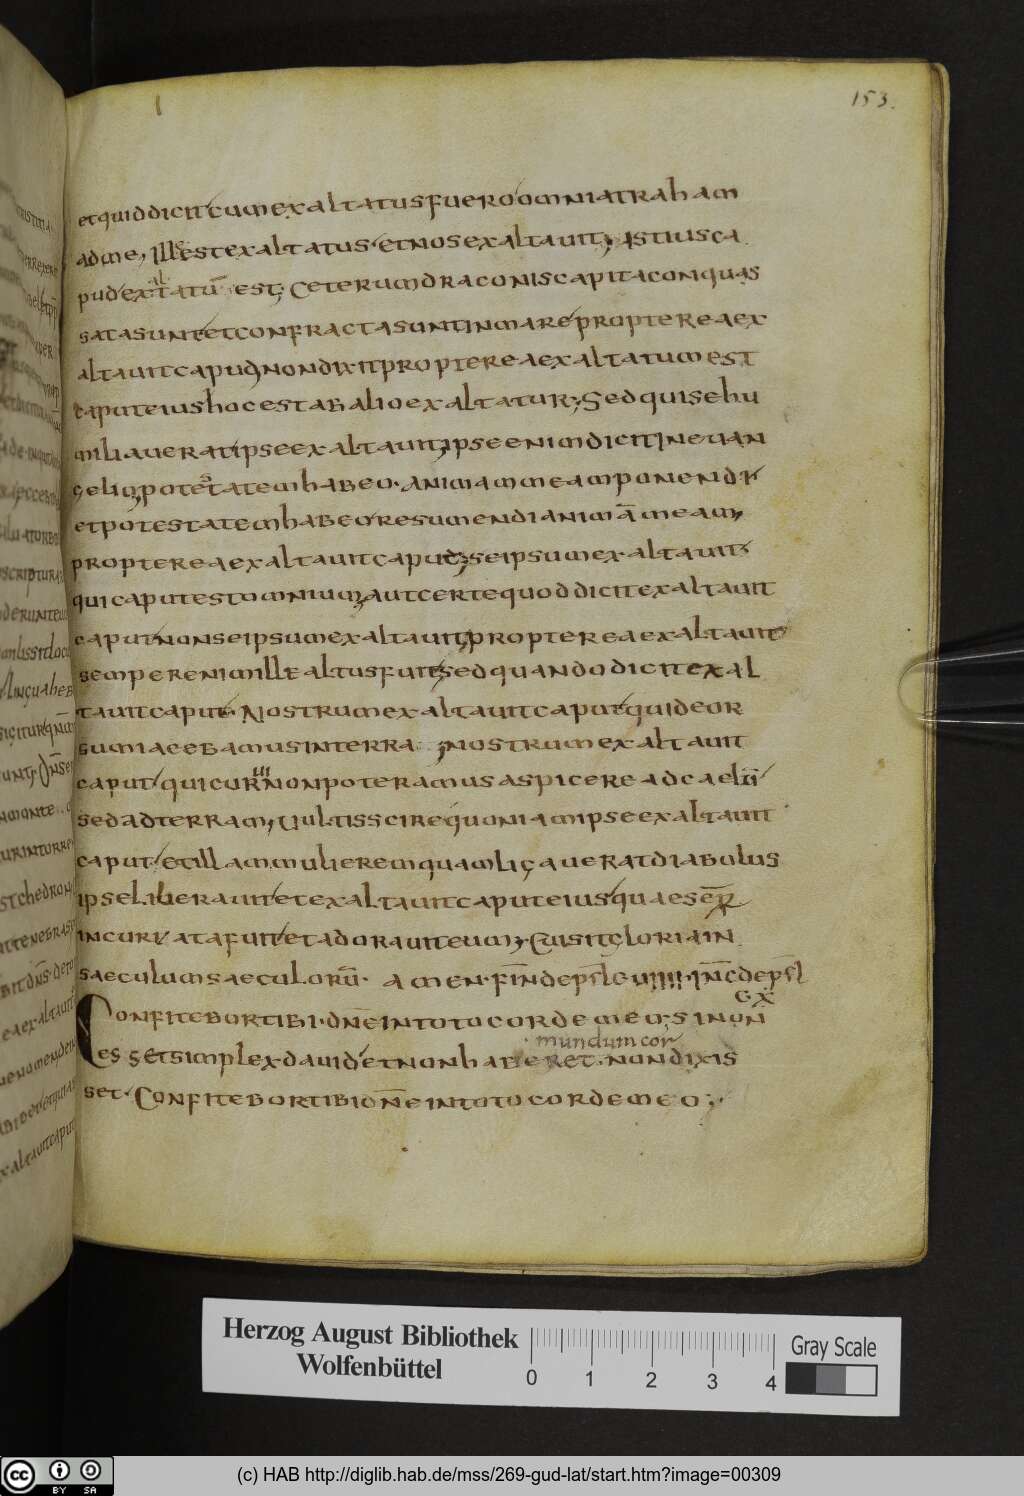 153.
et quid dicit cum exaltatus fuero omnia traham
ad me, Ille est exaltatus et nos exaltauit, Istius ca
pud exaltatū est; Ceterum draconis capita conquas
sata sunt et confracta sunt in mare propterea ex
altauit capud, non dixit propterea exaltatum est
caput eius hoc est ab alio exaltatur; Sed qui se hu
miliauerat ipse exaltauit, ipse enim dicit In euan
gelio, potestatem habeo. animam meam ponendi
et potestatem habeo resumendi animā meam,
propterea exaltauit caput; se ipsum exaltauit
qui caput est omnium, aut certe quod dicit exaltauit
caput non se ipsum exaltauit, propterea exaltauit
semper enim ille altus fuit, sed quando dicit exal
tauit caput. Nostrum exaltauit caput qui deor
sum iacebamus in terra, nostrum exaltauit
caput qui curui non poteramus aspicere ad caelū
sed ad terram, Uultis scire quoniam ipse exaltauit
caput et illam mulierem quam ligauerat diabulus
ipse liberauit et exaltauit caput eius quae semp̄
incuruata fuit et adorauit eum, Cui sit gloria in
saeculum saeculorū. amen. fiīn de psl cuiiii. inc de psl
cx
Confitebor tibi dn̄e in toto corde meo; si non
mundum cor
es set simplex dauid et non haberet. non dixis
set. Confitebor tibi dn̄e in toto corde meo;
Herzog August Bibliothek
Wolfenbüttel
0 1 2 3 4
Gray Scale
cc BY SA
(c) HAB http://diglib.hab.de/mss/269-gud-lat/start.htm?image=00309